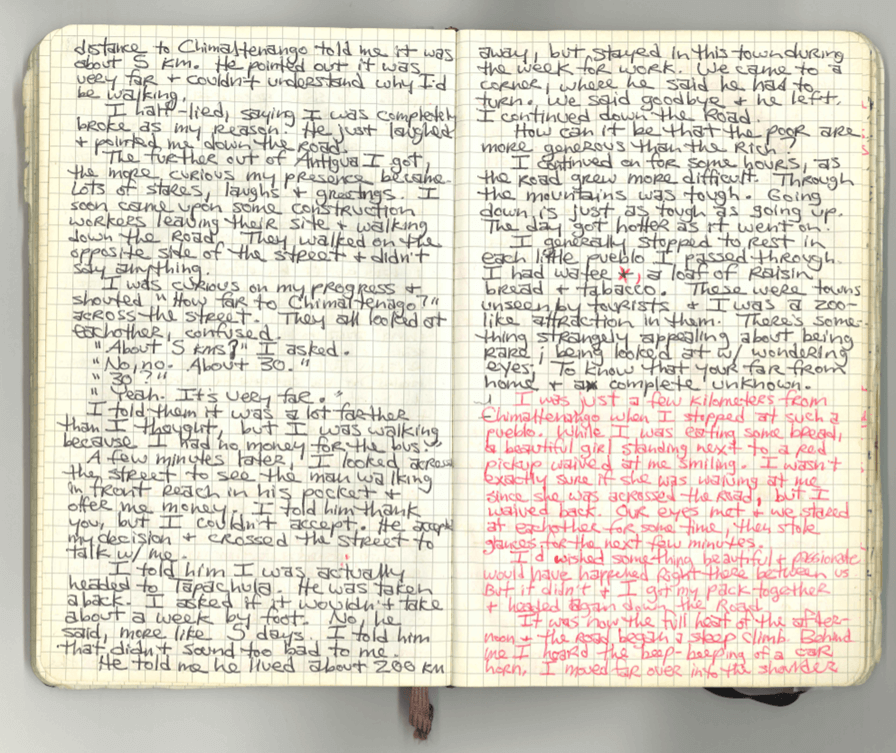 distance to Chimaltenango told me it was
about 5 km. He pointed out it was
very far + couldn't understand why I'd
be walking.
I half-lied, saying I was completely
broke as my reason. He just laughed
+ pointed me down the road.
The further out of Antigua I got,
the more curious my presence became.
Lots of stares, laughs + greetings. I
soon came upon some construction
workers leaving their site + walking
down the Road. They walked on the
opposite side of the street + didn't
say anything.
I was curious on my progress +
shouted "How far to Chimaltenago?"
across the street. They all looked at
eachother, confused.
"About 5 kms?" I asked.
"No, no. About 30."
"30?"
"Yeah. It's very far."
I told them it was a lot farther
than I thought, but I was walking
because I had no money for the bus."
A few minutes later, I looked across
the street to see the man walking
in front reach in his pocket +
offer me money. I told him thank
you, but I couldn't accept. He accepts
my decision + crossed the street to
talk w/ me.
I told him I was actually
headed to Tapachula. He was taken
aback. I asked if it wouldn't take
about a week by foot. No, he
said, more like 5 days. I told him
that didn't sound too bad to me.
He told me he lived about 200 km
away, but stayed in this town during
the week for work. We came to a
corner, where he said he had to
turn. We said goodbye + he left.
I continued down the Road.
How can it be that the poor are
more generous than the Rich?
I continued on for some hours, as
the road grew more difficult. Through
the mountains was tough. Going
down is just as tough as going up.
The day got hotter as it went on.
I generally stopped to rest in
each little pueblo I passed through.
I had water, a loaf of Raisin
bread + tabacco. These were towns
unseen by tourists + I was a zoo-
like attraction in them. There's some-
thing strangely appealing about being
rare; being looked at w/ wondering
eyes; To know that your far from
home + a complete unknown.
I was just a few kilometers from
Chimaltenango when I stopped at such a
pueblo. While I was eating some bread,
a beautiful girl standing next to a red
pickup waived at me smiling. I wasn't
exactly sure if she was waving at me
since she was acrossed the Road, but I
waived back. Our eyes met + we stared
at eachother for some time, then stole
glances for the next few minutes.
I'd wished something beautiful + passionate
would have happened Right there between us.
But it didn't + I got my pack together
+ headed again down the Road.
It was now the full heat of the after-
noon + the Road began a steep climb. Behind
me I heard the beep-beeping of a car
horn. I moved far over into the shoulder